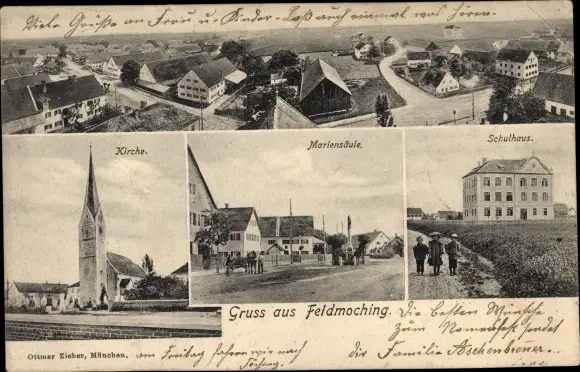 Viele Grüße an Frau u Kinder. Laß auch einmal was hören.
Kirche.
Mariensäule.
Schulhaus.
Gruss aus Feldmoching.
Die besten Wünsche
zum Namensfest sendet
die Familie Aschenbrenner.
Ottmar Zieher, München.
am Freitag fahren wir nach